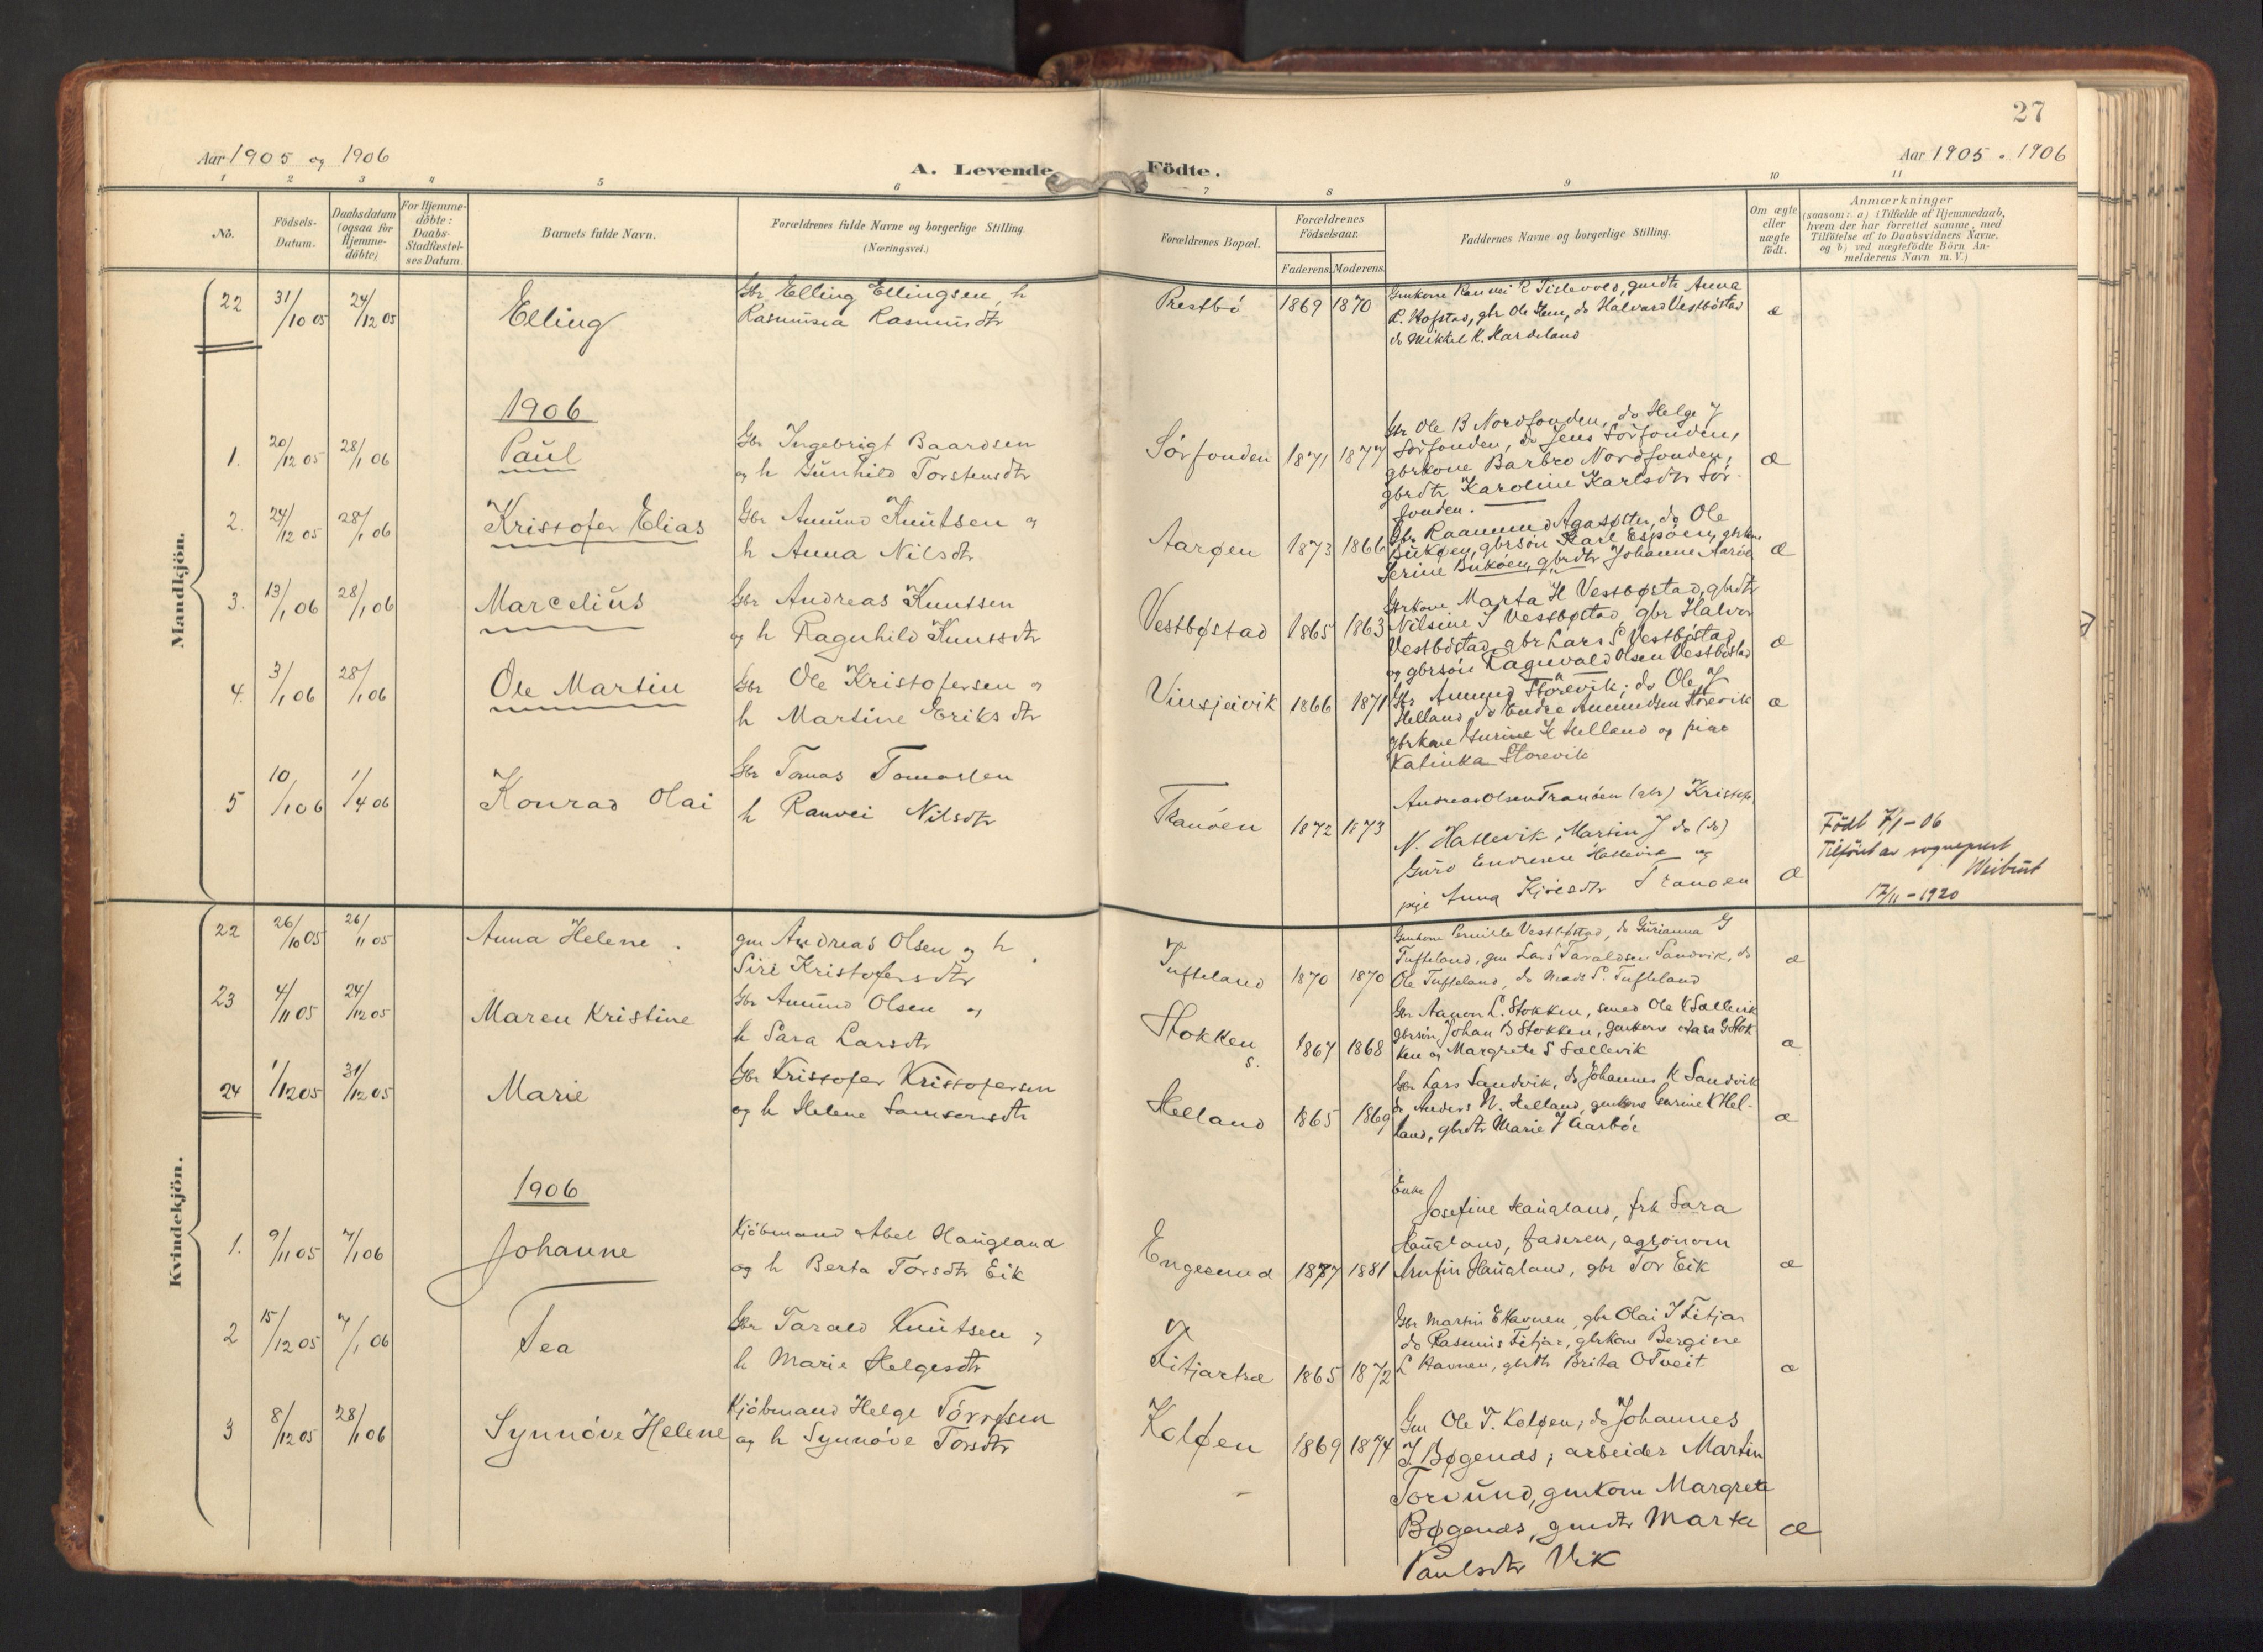 27
Aar 1905 og 1906
A. Levende Födte.
Aar 1905 . 1906
1 2 3 4 5 6 7 8 9 10 11
No.
Födsels-
Datum.
Daabsdatum
(ogsaa for
Hjemme-
döbte)
For Hjemme-
döbte:
Daabs-
Stadfæstel-
ses Datum.
Barnets fulde Navn.
Forældrenes fulde Navne og borgerlige Stilling.
(Næringsvei.)
Forældrenes Bopæl.
Forældrenes
Födselsaar.
Faderens. Moderens.
Faddernes Navne og borgerlige Stilling.
Om ægte
eller
uægte
født.
Anmærkninger
(saasom: a) i Tilfælde af Hjemmedaab,
hvem der har forrettet samme, med
Tilföielse af to Daabsvidners Navne,
og b) ved uægtefödte Börn An-
melderens Navn m. V.)
Mandkjön.
22 31/10 05 24/12 05 Elling
Gbr Elling Ellingsen, h
Rasmusea Rasmusdtr
Prestbö 1869 1870
R. Hofstad, gbr Ole Hum, do Halvard Vestböstad
do Mikkel K. Hardeland
æ
1906
1. 20/12 05 28/1 06 Paul
Gbr Ingebrigt Baardsen
og h Gunhild Torstensdtr
Sörfonden 1871 1877
Gbr Ole B Nordfonden, do Helge J
Sörfonden, do Jens Sörfonden,
gbrkone Barbro Nordfonden,
gbrdtr Karoline Karlsdtr Sör-
fonden.
æ
2. 24/12 05 28/1 06 Kristofer Elias
Gbr Amund Knutsen og
h Anna Nilsdtr
Aarøen 1873 1866
Gbr Raamund Agasøster, do Ole
Bukøen, gbrsön Karl Espöen, gbrkone
Serine Buköen, gbrdtr Johanne Aaröe
æ
3. 13/1 06 28/1 06 Marcelius
Gbr Andreas Knutsen
og h Ragnhild Knutsdtr
Vestbøstad 1865 1863
Gbrkone Marta H Vestbøstad, gbrdtr
Nilsine I Vestbøstad, gbr Halvor
Vestböstad, gbr Lars S Vestböstad
og gbrsön Ragnvald Olsen Vestböstad
æ
4. 3/1 06 28/1 06 Ole Martin
Gbr Ole Kristofersen og
h Martine Eriksdtr
Vinsjeivik 1866 1871
Gbr Amund Storevik; do Ole J
Helland, do Endre Amundsen Storevik
gbrkone Gurine K Helland og pige
Katinka Storevik
æ
5 10/1 06 1/4 06 Konrad Olai
Gbr Tomas Tomassen
h Ranvei Nilsdtr
Tranöen 1872 1873
Andreas Olsen Tranöen (gbr) Kristofer
N. Hatlevik, Martin J do (do)
Guro Endresen Hatlevik og
pige Anna Kjösdtr Tranöen
æ
Födt 7/1-06
Tilfört av sogneprest
Weibust
17/11-1920
Kvindekjön.
22 26/10 05 26/11 05 Anna Helene
gm Andreas Olsen og h
Siri Kristofersdtr
Tufteland 1870 1870
Gmkone Pernille Vestböstad, do Gurianna G
Tufteland, gm Lars Taraldsen Sandvik, do
Ole Tufteland, do Mads S. Tufteland
æ
23 4/11 05 24/12 05 Maren Kristine
Gbr Amund Olsen og
h Sara Larsdtr
Stokken
s. 1867 1868
Gbr Aanon L. Stokken, smed Ole K Sællevik
gbrsön Johan B Stokken, gmkone Aasa G Stok
ken og Margrete S Sællevik
æ
24 1/12 05 31/12 05 Marie
Gbr Kristofer Kristofersen
og h Helene Samsonsdtr
Helland 1865 1869
Gbr Lars Sandvik, do Johannes K Sandvik
do Anders N. Helland, gmkone Gurine K Hel-
land, gbrdtr Marie J Aarböe
æ
1906
1. 9/11 05 7/1 06 Johanne
Kjöbmand Abel Haugland
og h Berta Torsdtr Eik
Engesund 1877 1881
Enke
Josefine Haugland, frk Sara
Haugland, faderen, agronom
Arnfin Haugland, gbr Tor Eik
æ
2 15/12 05 7/1 06 Tea
Gbr Tarald Knutsen og
h Marie Helgesdtr
Fitjartræ 1865 1872
Gbr Martin E Havnen, gbr Olai I Fitjar
do Rasmus Fitjar, gbrkone Bergine
L Havnen, gbrdtr Brita O Tveit
æ
3 8/12 05 28/1 06 Synnöve Helene
Kjöbmand Helge Törresen
og h Synnöve Torsdtr
Kaløen 1869 1874
Gm Ole T. Kaløen; do Johannes
J. Bøgenæs; arbeider Martin
Torsund, gmkone Margrete
Bøgenæs, gmdtr Marta
Paulsdtr Vik
æ